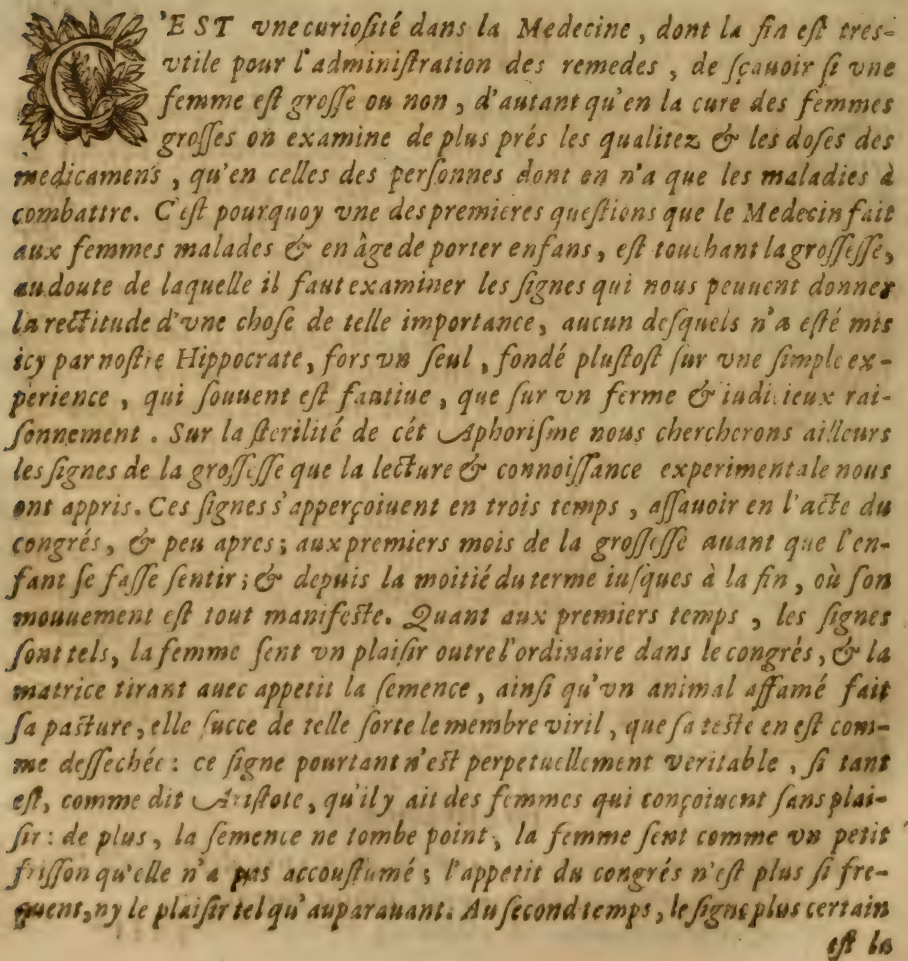 C'EST vne curioſité dans la Medecine, dont la fin eſt tres-
vtile pour l'adminiſtration des remedes, de ſçauoir ſi vne
femme eſt groſſe ou non, d'autant qu'en la cure des femmes
groſſes on examine de plus prés les qualitez & les doſes des
medicamens, qu'en celles des perſonnes dont on n'a que les maladies à
combattre. C'eſt pourquoy vne des premieres queſtions que le Medecin fait
aux femmes malades & en âge de porter enfans, eſt touchant la groſſeſſe,
au doute de laquelle il faut examiner les ſignes qui nous peuuent donner
la rectitude d'vne choſe de telle importance, aucun deſquels n'a eſté mis
icy par noſtre Hippocrate, fors vn ſeul, fondé pluſtoſt ſur vne ſimple ex-
perience, qui ſouuent eſt fautiue, que ſur vn ferme & iudicieux rai-
ſonnement. Sur la ſterilité de cét Aphoriſme nous chercherons ailleurs
les ſignes de la groſſeſſe que la lecture & connoiſſance experimentale nous
ont appris. Ces ſignes s'apperçoiuent en trois temps, aſſauoir en l'acte du
congrés, & peu apres; aux premiers mois de la groſſeſſe auant que l'en-
fant ſe faſſe ſentir; & depuis la moitié du terme iuſques à la fin, où ſon
mouuement eſt tout manifeſte. Quant aux premiers temps, les ſignes
ſont tels, la femme ſent vn plaiſir outre l'ordinaire dans le congrés, & la
matrice tirant auec appetit la ſemence, ainſi qu'vn animal affamé fait
ſa paſture, elle ſucce de telle ſorte le membre viril, que ſa teſte en eſt com-
me deſſechée: ce ſigne pourtant n'eſt perpetuellement veritable, ſi tant
eſt, comme dit Ariſtote, qu'il y ait des femmes qui conçoiuent ſans plai-
ſir: de plus, la ſemence ne tombe point, la femme ſent comme vn petit
friſſon qu'elle n'a pas accouſtumé; l'appetit du congrés n'eſt plus ſi fre-
quent, ny le plaiſir tel qu'auparauant. Au ſecond temps, le ſigne plus certain
eſt la